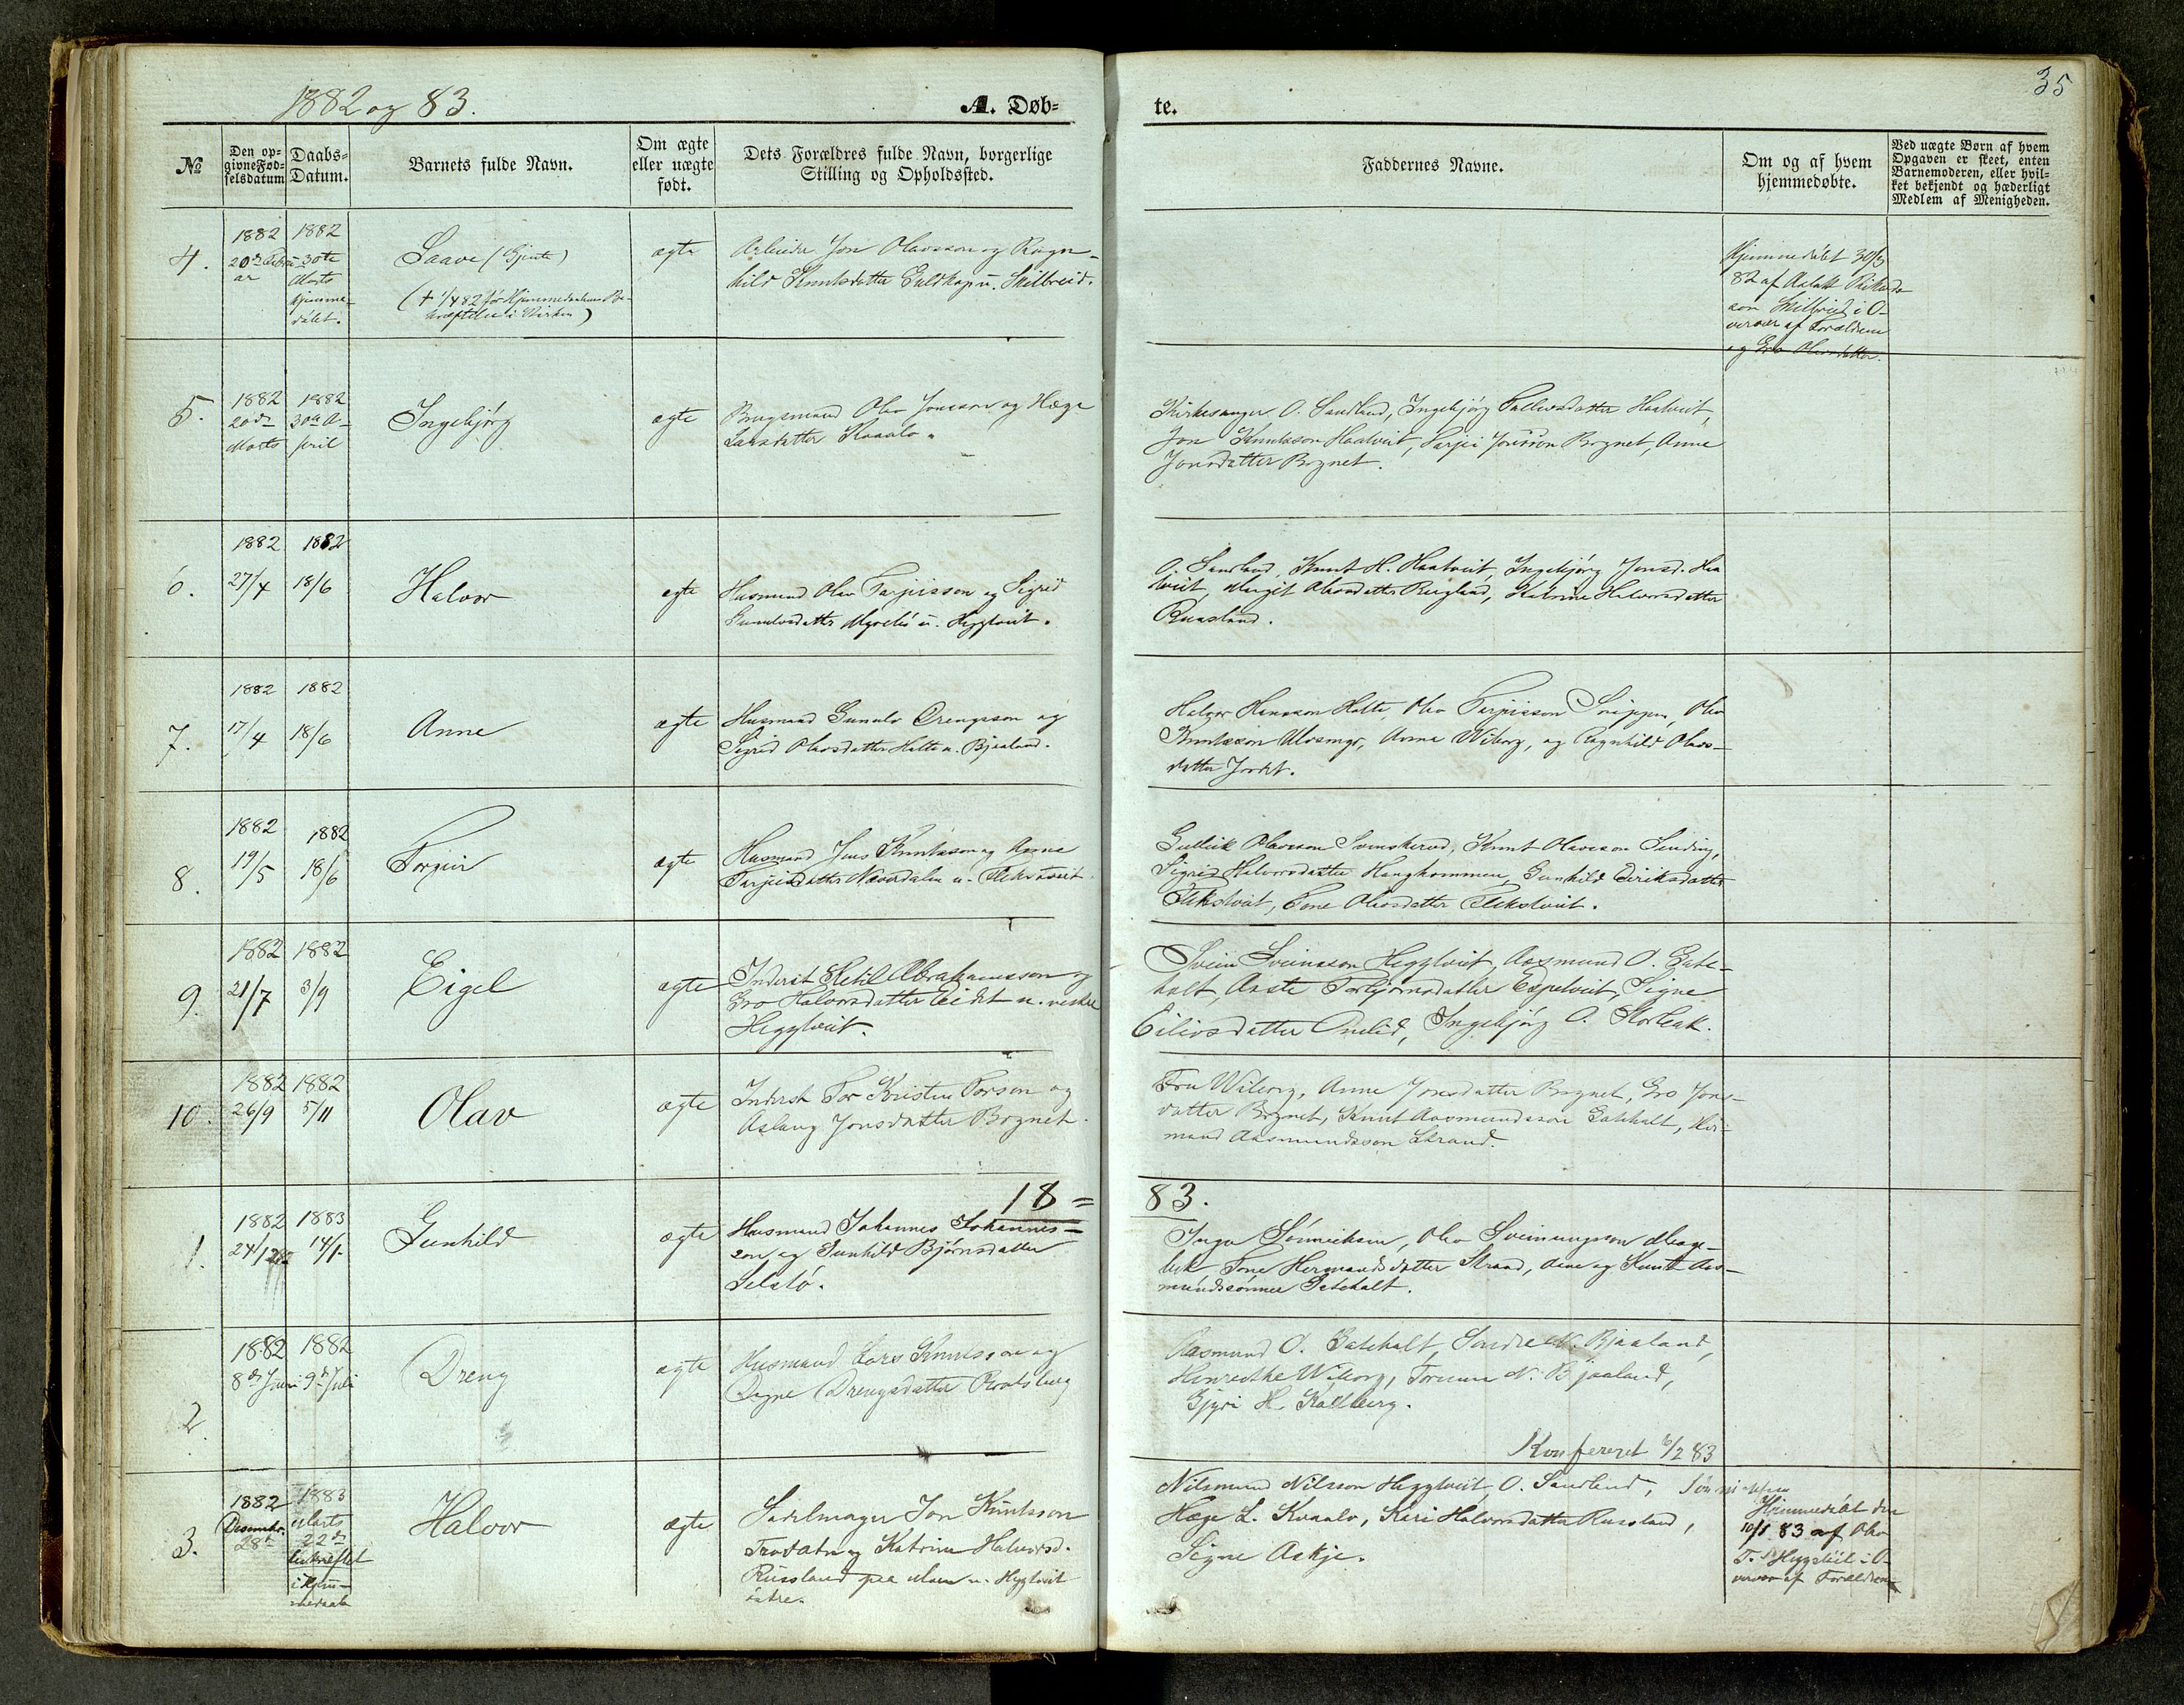 1882 og 83.
A. Døb-
te.
35
№
Den op-
givne Fød-
selsdatum
Daabs-
Datum.
Barnets fulde Navn.
Om ægte
eller uægte
født.
Dets Forældres fulde Navn, borgerlige
Stilling og Opholdssted.
Faddernes Navne.
Om og af hvem
hjemmedøbte.
Ved uægte Børn af hvem
Opgaven er skeet, enten
Barnemoderen, eller hvil-
ket bekjendt og hæderligt
Medlem af Menigheden.
4.
1882
20de Febru-
ar
1882
30te
Marts
hjemme-
døbt.
Saave (Gjente)
ægte
Arbeider Jon Olavsson og Ragn-
hild Knutsdatter u. Skilbreid.
Hjemmedøbt 30/3
82 af Aslak
son Skilbreid i O-
vervær af Forældrene
og Gro Olavsdatter.
5.
1882
20de
Marts
1882
30te A-
pril
Ingebjørg
ægte
Brugsmand Olav Jonsson og Hæge
Larsdatter Kvaalo.
Kirkesanger O. Sandland, Ingebjørg Haatveit,
Jon Knutsson Haatveit, Tarjei Jonsson Bognet, Anne
Jonsdatter Bognet.
6.
1882
27/4
1882
18/6
Halvor
ægte
Husmand Olav Tarjeisson og Sigrid
u. Heggtveit.
O. Sandland, Knut H. Haatveit, Ingebjørg Jonsd. Haa
tveit, Margit Olavsdatter Katrine Halvorsdatter
Ruusland.
7.
1882
17/4
1882
18/6
Anne
ægte
Husmand Gunulv Drengsson og
Sigrid Olavsdatter Holte u. Bjaaland.
Halvor Hansson Holte, Olav Tarjeisson Olav
Knutsson Anne Wiborg, og Ragnhild Olavs-
datter Jordet.
8.
1882
19/5
1882
18/6
Torgeir
ægte
Husmand Jens Knutsson og Anne
Tarjeisdatter u. Flekstveit.
Gullik Olavsson Knut Olavsson
Sigrid Halvorsdatter Haughommen, Gunhild Eiriksdatter
Flekstveit, Tone Olavsdatter Flekstveit.
9.
1882
21/7
1882
3/9
Eigel
ægte
Inderst Ketil Abrahamsson og
Gro Halvorsdatter Eidet u. vestre
Heggtveit.
Svein Sveinsson Heggtveit, Aasmund O. Gate-
halt, Aaste Torbjørnsdatter Espetveit, Signe
Eilivsdatter Omlid, Ingebjørg O. Storleak.
10.
1882
26/9
1882
5/11
Olav
ægte
Inderst Tor Kristen Torson og
Aslaug Jonsdatter Bognet.
Fru Wiborg, Anne Jonsdatter Bognet, Gro Jons-
datter Bognet, Knut Aasmundsson Gatehalt, Her-
mand Aasmundsson Strand.
18=
83.
1.
1882
24/12
1883
14/1
Gunhild
ægte
Husmand Johannes Johannis-
son og Gunhild Bjørnsdatter
Selstø.
Inga Sønniksen, Olav Sveinungson
Tone Hermandsdatter Strand, Aane og Knut Aas-
mundssønner Gatehalt.
2.
1882
8de Juni
1882
9de Juli
Dreng
ægte
Husmand Lars Knutsson og
Dagne Drengsdatter
Aasmund O. Gatehalt, Sondre N. Bjaaland,
Henriette Wiborg, Torunn N. Bjaaland,
Gjyri H. Kallberg.
Konfereret 6/2 83
3.
1882
Desember.
28de
1883
Marts
22de
bekræftet
i Hjem-
medaab
Halvor
ægte
Sadelmager Jon Knutsson
og Katrine Halvorsd.
Russland paa u. Heggtveit
østre.
Nilsmund Nilsson Heggtveit, O. Sandland,
Hæge L. Kvaalo, Kari Halvorsdatter Russland,
Signe Askje.
Hjemmedøbt den
10/1 83 af Olav
T. Heggtveit i O-
vervær af Forældrene